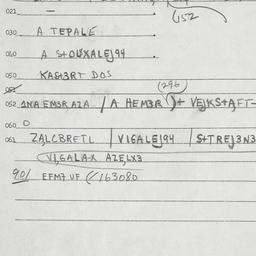 021 —
(152
030 A TEPALE
040 A S+OUXALEJ94
050 KASI3RT DOS
051
(296)
052 ANA EM3R AZA / A HEM3R )+ VEJKS+AFT-
060 O
061 ZALCBRETL | VIGALEJ94 | S+TREJ3N3
(VI,GALA-X AZE,LX3
901 EFM7 UF (/163080